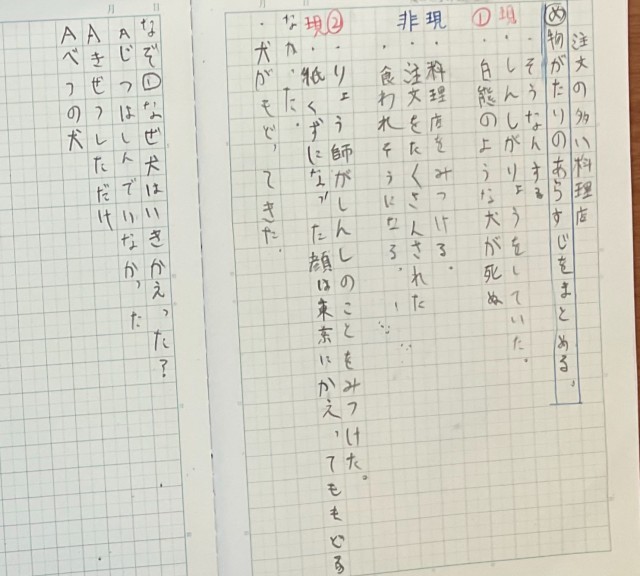 注文の多い料理店
め 物がたりのあらすじをまとめる。
・そうなんする
現 ・しんしがりょうをしていた。
① ・白熊のような犬が死ぬ
現 ・料理店をみつける。
非 ・注文をたくさんされた
・食われそうになる。
② ・りょう師がしんしのことをみつけた。
現 ・紙くずになった顔は東京にかえってももどる
なかった。
・犬がもどってきた。
なぞ①なぜ犬はいきかえった?
Aじつはしんでいなかった
Aきぜつしただけ
Aべつの犬